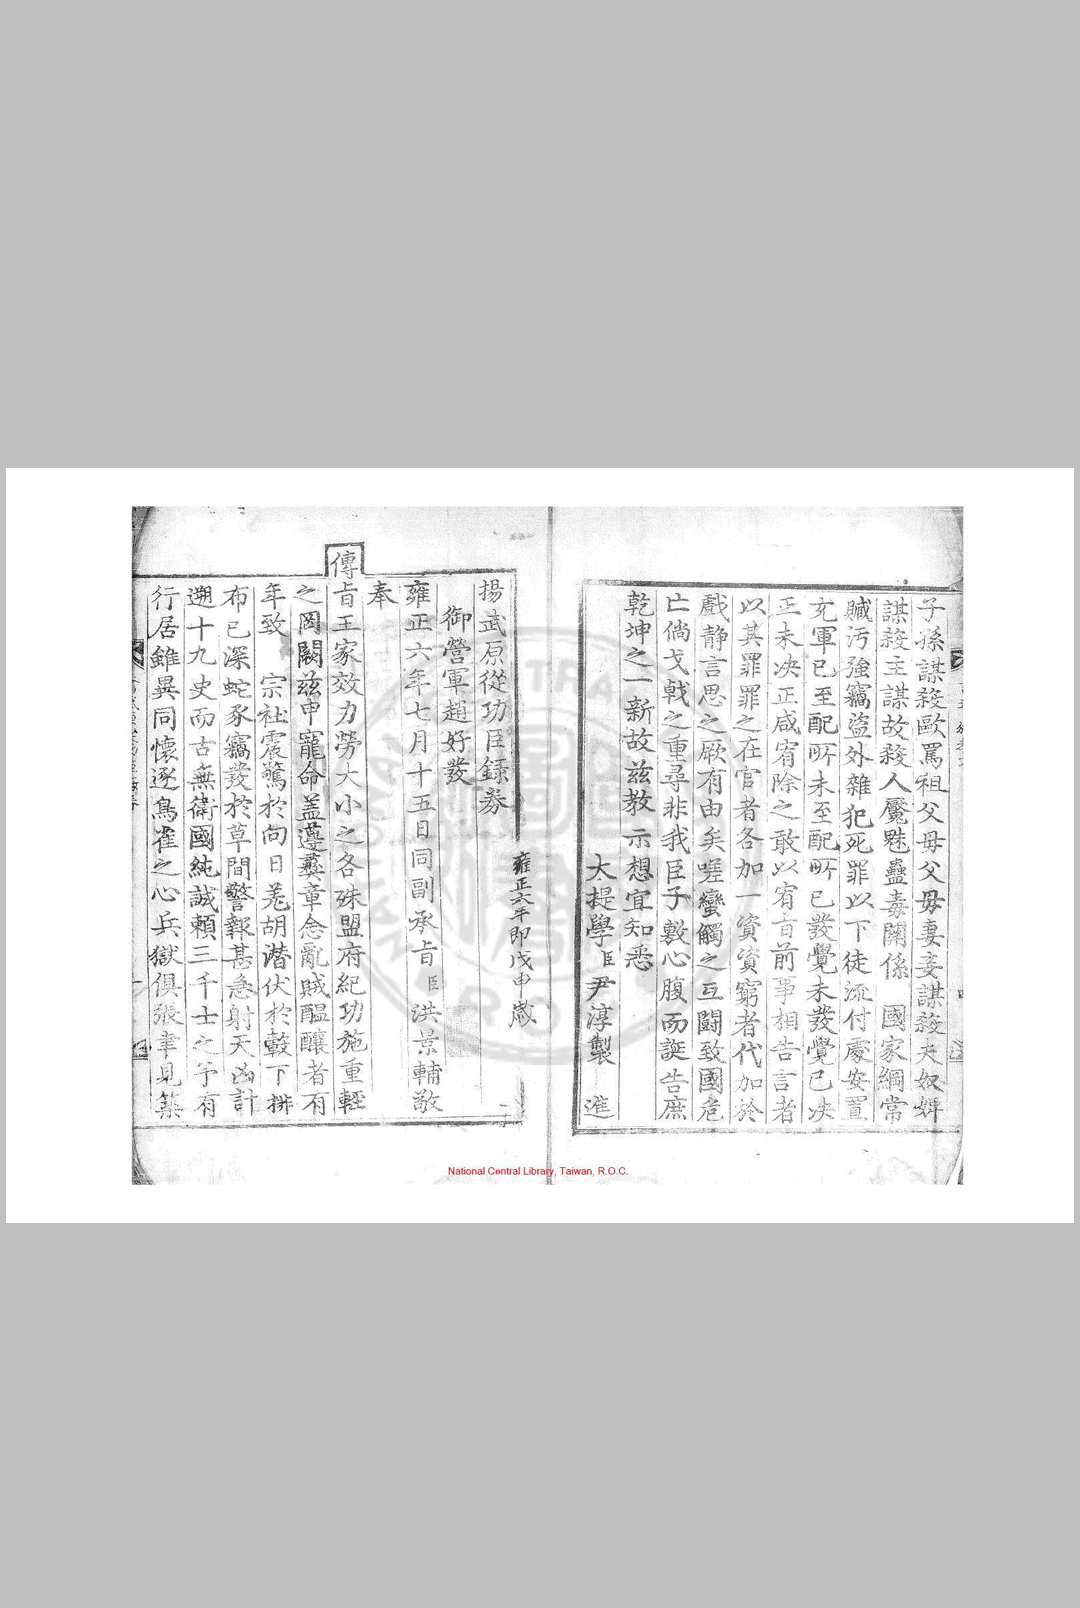 子孫謀殺毆罵祖父母父母妻妾謀殺夫奴婢
謀殺主謀故殺人魘魅蠱毒關係　國家綱常
贓汚強竊盜外雜犯死罪以下徒流付處安置
充軍已至配所未至配所已發覺未發覺已决
正未决正咸宥除之敢以宥旨前事相告言者
以其罪罪之在官者各加一資資窮者代加於
戲靜言思之厥有由矣嗟蠻觸之互鬪致國危
亡倘戈戟之重尋非我臣子敷心腹而誕告庶
乾坤之一新故玆敎示想宜知悉
大提學臣尹淳製　進
雍正六年即戊申歲
揚武原從功臣錄券
御營軍趙好發
雍正六年七月十五日同副承旨臣洪景輔敬
奉
傳旨王家效力勞大小之各殊盟府紀功施重輕
之罔闕玆申寵命盖遵彛章念亂賊醞釀者有
年致　宗社震驚於向日羗胡潛伏於轂下排
布已深蛇豕竊發於草間警報甚急射天凶計
遡十九史而古無衛國純誠賴三千士之予有
行居雖異同懷逐鳥雀之心兵獄俱張聿見築
National Central Library, Taiwan, R.O.C.